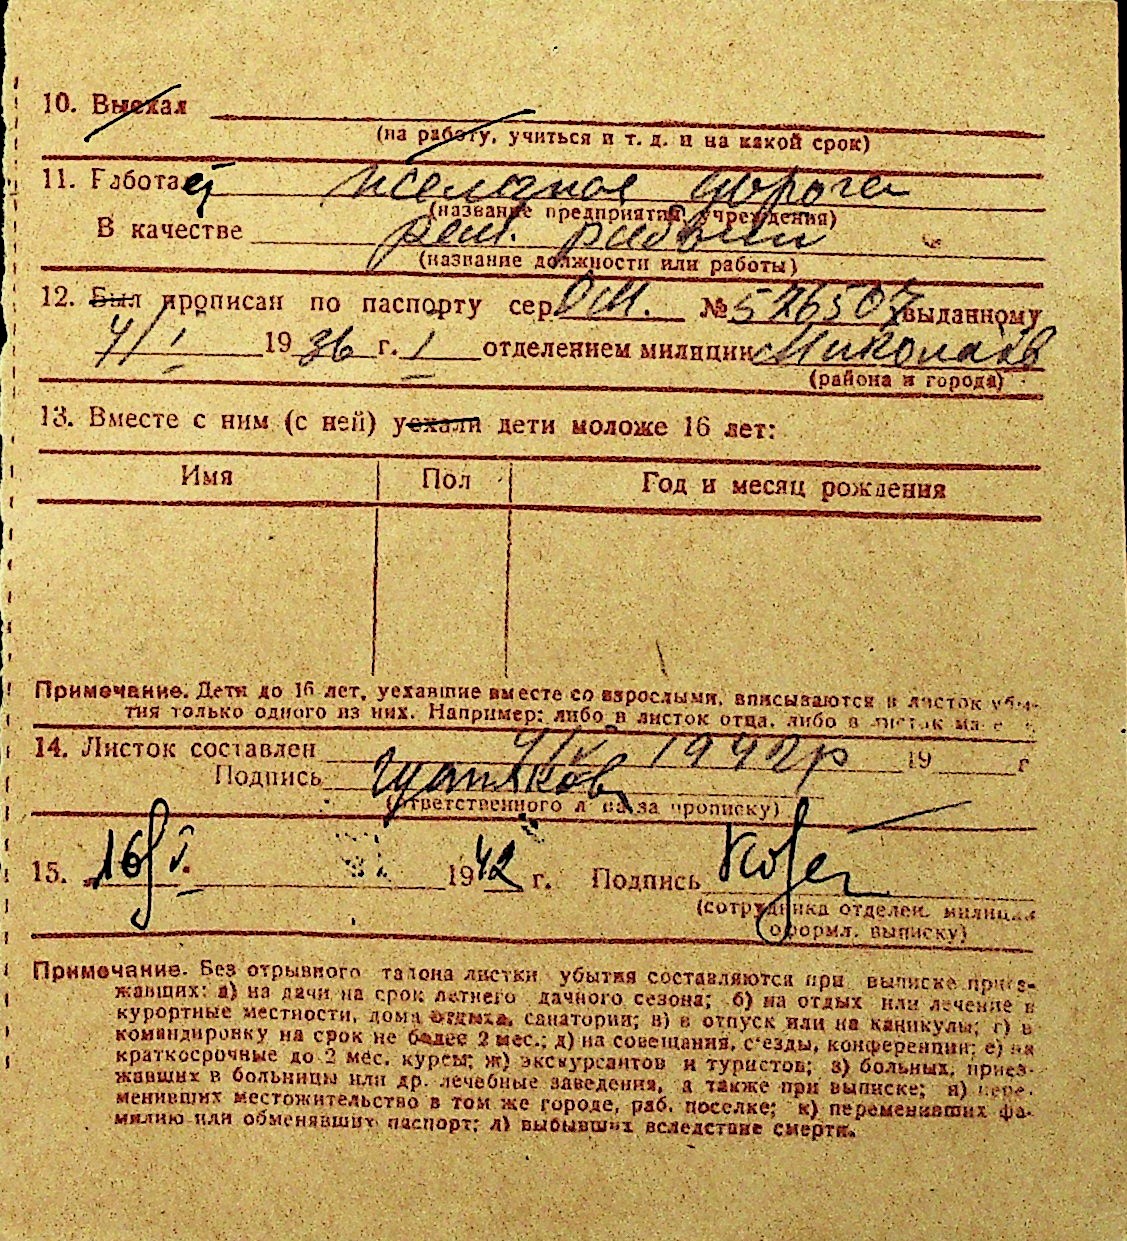 10. Выехал
(на работу, учиться и т. д. и на какой срок)
11. Работает железная дорога
(название предприятия, учреждения)
В качестве рем. рабочий
(название должности или работы)
12. Был прописан по паспорту сер. ОМ. № 526507 выданному
4/I 1936 г. 1 отделением милиции Миколаїв
(района и города)
13. Вместе с ним (с ней) уехали дети моложе 16 лет:
Имя Пол Год и месяц рождения
Примечание. Дети до 16 лет, уехавшие вместе со взрослыми, вписываются в листок убы-
тия только одного из них. Например: либо в листок отца, либо в листок
14. Листок составлен 1942р 19 г
Подпись
(ответственного за прописку)
15. 16/V. 1942 г. Подпись
(сотрудника отделен. милиции
оформл. выписку)
Примечание. Без отрывного талона листки убытия составляются при выписке приез-
жавших: а) на дачи на срок летнего дачного сезона; б) на отдых или лечение в
курортные местности, дома отдыха, санатории; в) в отпуск или на каникулы; г) в
командировку на срок не более 2 мес.; д) на совещания, с'езды, конференции; е) на
краткосрочные до 2 мес. курсы; ж) экскурсантов и туристов; з) больных, приез-
жавших в больницы или др. лечебные заведения, а также при выписке; и) пере-
менивших местожительство в том же городе, раб. поселке; к) переменивших фа-
милию или обменявших паспорт; л) выбывших вследствие смерти.